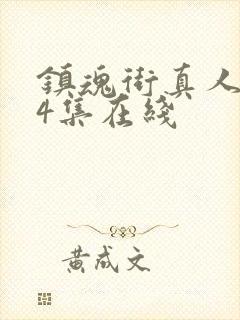 鎮魂街真人
4集在綫
黄成文